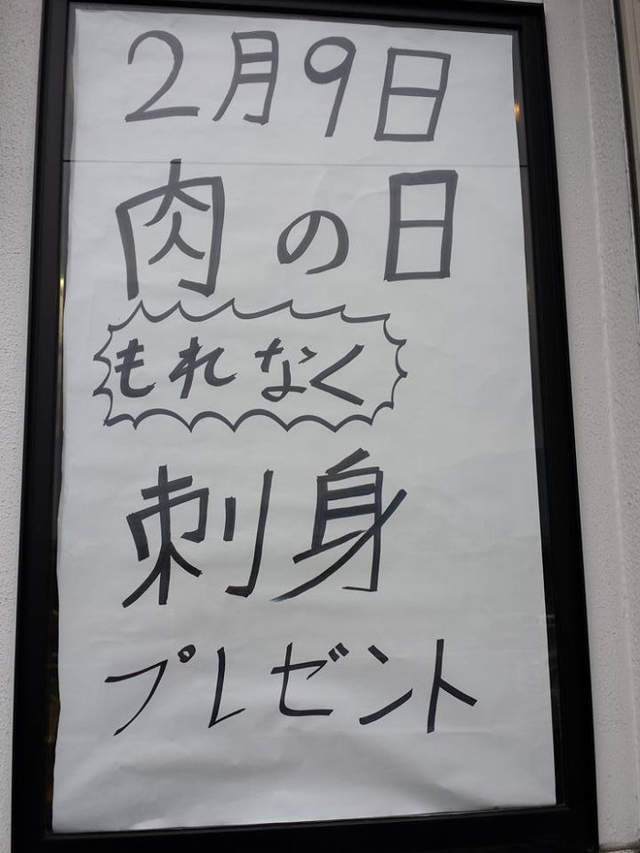 2月9日
肉の日
もれなく
刺身
プレゼント